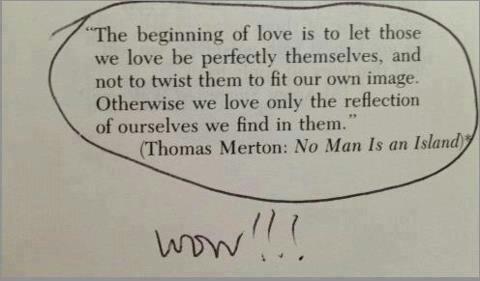 "The beginning of love is to let those
we love be perfectly themselves, and
not to twist them to fit our own image.
Otherwise we love only the reflection
of ourselves we find in them."
(Thomas Merton: No Man Is an Island)*
wow!!!